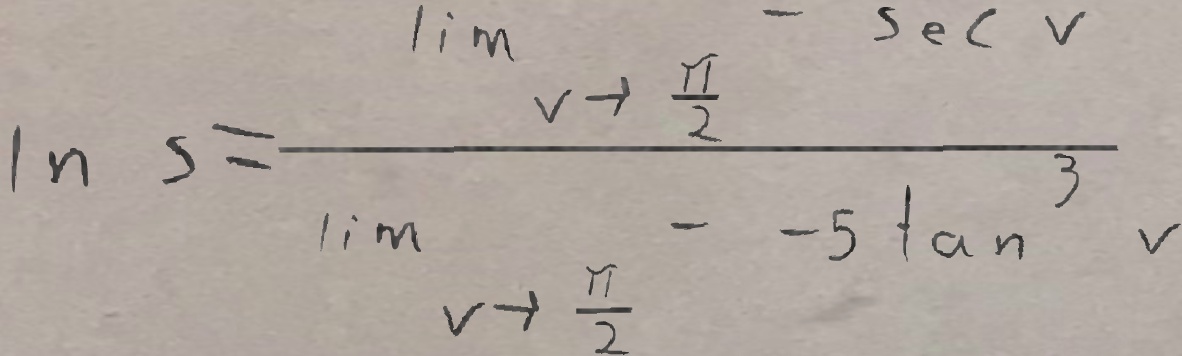 \ln s = \frac{\lim_{v \to \frac{\pi}{2}^{-}} \sec v}{\lim_{v \to \frac{\pi}{2}^{-}} -5 \tan^{3} v}